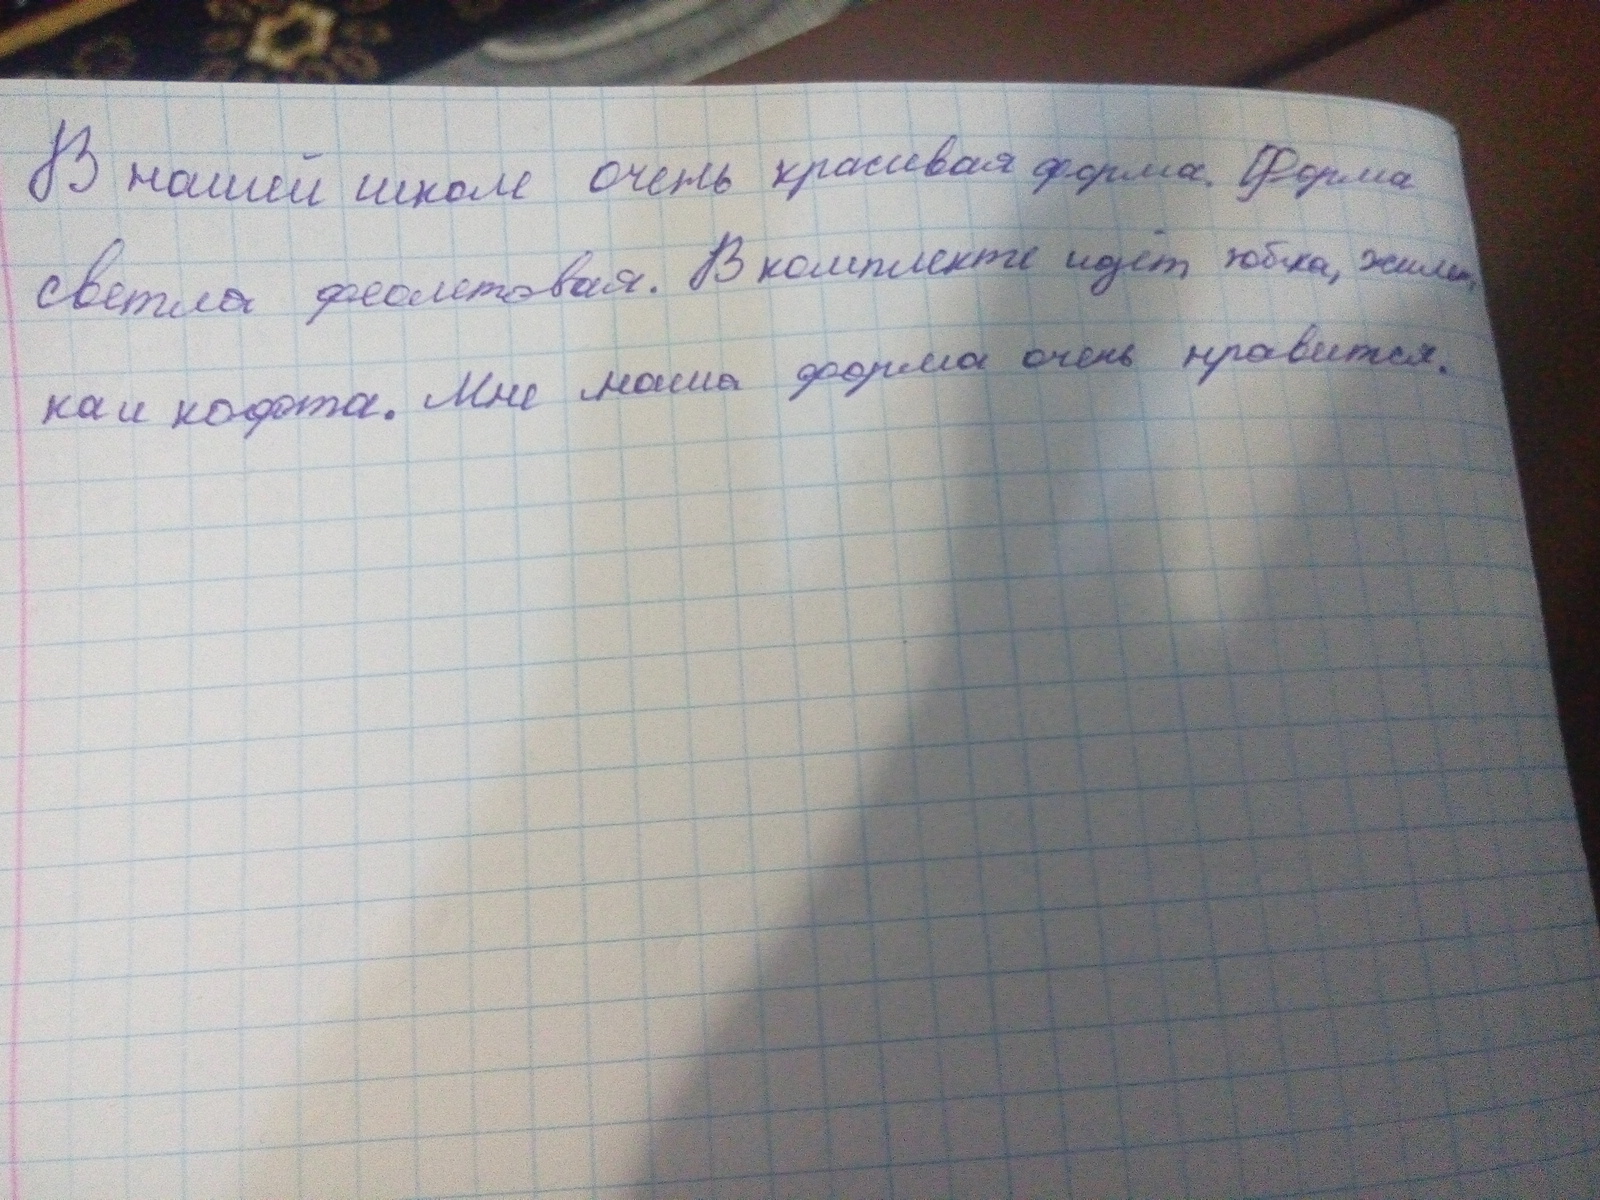 В нашей школе очень красивая форма. Форма
светла феолетовая. В комплекте идёт юбка, жилет,
ка и кофта. Мне наша форма очень нравится.